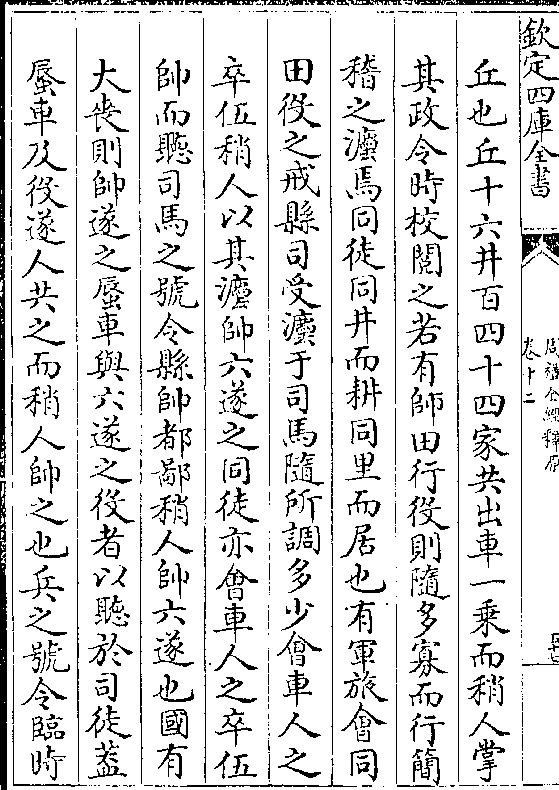 欽定四庫全書
卷十二
丘也丘十六井百四十四家共出車一乘而稍人掌
其政令時校閱之若有師田行役則隨多寡而行簡
稽之灋焉同徒同井而耕同里而居也有軍旅會同
田役之戒縣司受灋于司馬隨所調多少會車人之
卒伍稍人以其灋帥六遂之同徒亦會車人之卒伍
帥而聽司馬之號令縣帥都鄙稍人帥六遂也國有
大喪則帥遂之蜃車與六遂之役者以聽於司徒葢
蜃車及役遂人共之而稍人帥之也兵之號令臨時